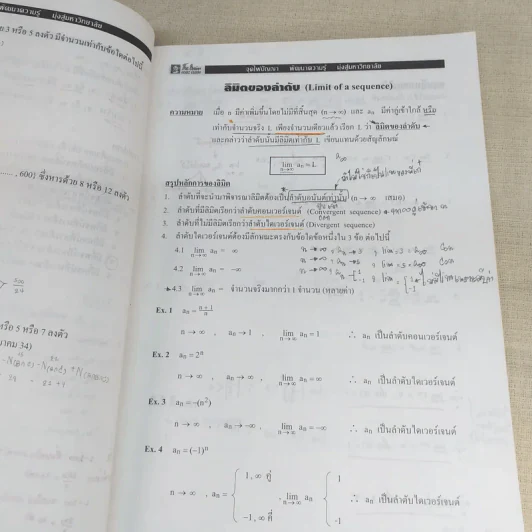 พัฒนาความรู้ มุ่งสู่มหาวิทยาลัย
3 หรือ 5 ลงตัว มีจำนวนเท่ากับข้อใดต่อไปนี้
600} ซึ่งหารด้วย 8 หรือ 12 ลงตัว
หรือ 5 หรือ 7 ลงตัว
าคม 34)
จุดไฟปัญญา พัฒนาความรู้ มุ่งสู่มหาวิทยาลัย
ลิมิตของลำดับ (Limit of a sequence)
ความหมาย เมื่อ n มีค่าเพิ่มขึ้นโดยไม่มีที่สิ้นสุด (n → ∞) และ aₙ มีค่าคู่เข้าใกล้ หรือ
เท่ากับจำนวนจริง L เพียงจำนวนเดียวแล้วเรียก L ว่า ลิมิตของลำดับ
และกล่าวว่าลำดับนั้นมีลิมิตเท่ากับ L เขียนแทนด้วยสัญลักษณ์
lim n→∞ aₙ = L
a∞
สรุปหลักการของลิมิต
1. ลำดับที่จะนำมาพิจารณาลิมิตต้องเป็นลำดับอนันต์เท่านั้น (n → ∞ เสมอ)
2. ลำดับที่มีลิมิตเรียกว่าลำดับคอนเวอร์เจนต์ (Convergent sequence)
3. ลำดับที่ไม่มีลิมิตเรียกว่าลำดับไดเวอร์เจนต์ (Divergent sequence)
4. ลำดับไดเวอร์เจนต์ต้องมีลักษณะตรงกับข้อใดข้อหนึ่งใน 3 ข้อ ต่อไปนี้
4.1 lim n→∞ aₙ = ∞
4.2 lim n→∞ aₙ = −∞
4.3 lim n→∞ aₙ = จำนวนจริงมากกว่า 1 จำนวน (หลายค่า)
Ex. 1 aₙ = (n + 1)/n
n → ∞ , aₙ → 1 , lim n→∞ aₙ = 1 ∴ aₙ เป็นลำดับคอนเวอร์เจนต์
Ex. 2 aₙ = 2ⁿ
n → ∞ , aₙ → ∞ , lim n→∞ aₙ = ∞ ∴ aₙ เป็นลำดับไดเวอร์เจนต์
Ex. 3 aₙ = −(n²)
n → ∞ , aₙ → −∞ , lim n→∞ aₙ = −∞ ∴ aₙ เป็นลำดับไดเวอร์เจนต์
Ex. 4 aₙ = (−1)ⁿ
1 , ∞ คู่ 1
n → ∞ , aₙ = { , lim n→∞ aₙ { ∴ aₙ เป็นลำดับไดเวอร์เจนต์
−1, ∞ คี่ −1